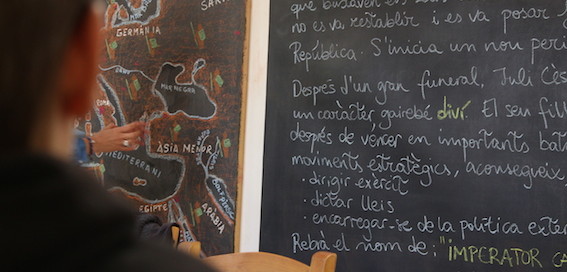 GERMÀNIA
SARM
MAR NEGRE
ÀSIA MENOR
MEDITERRANI
EGIPTE
ARÀBIA
GOLF PÈRSIC
no es va restablir i es va posar
República. S'inicia un nou perí
Després d'un gran funeral, Juli Cès
un caràcter gairebé diví. El seu fill
després de vencer en importants bat
moviments estratègics, aconsegueix
· dirigir exèrcit
· dictar lleis
· encarregar-se de la política exter
Rebrà el nom de: "IMPERATOR CA